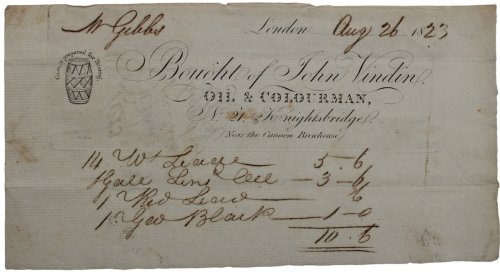 Mr Gibbs
London Aug 26 1823
Colours prepared for Painting
Bought of John Vindin,
OIL & COLOURMAN,
No 21 Knightsbridge,
Near the Cannon Brewhouse.
14 Wt Lead 5 . 6
Gall Lind Oil 3 - 6
1 Red Lead 6
1 Black 1 - 0
10 . 6